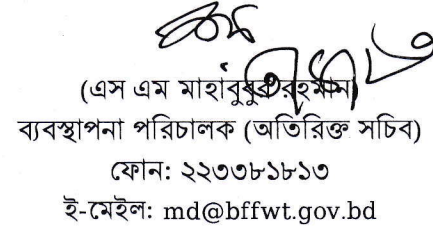 (এস এম মাহাবুবুর রহমান)
ব্যবস্থাপনা পরিচালক (অতিরিক্ত সচিব)
ফোন: ২২৩৩৮১৮১৩
ই-মেইল: md@bffwt.gov.bd